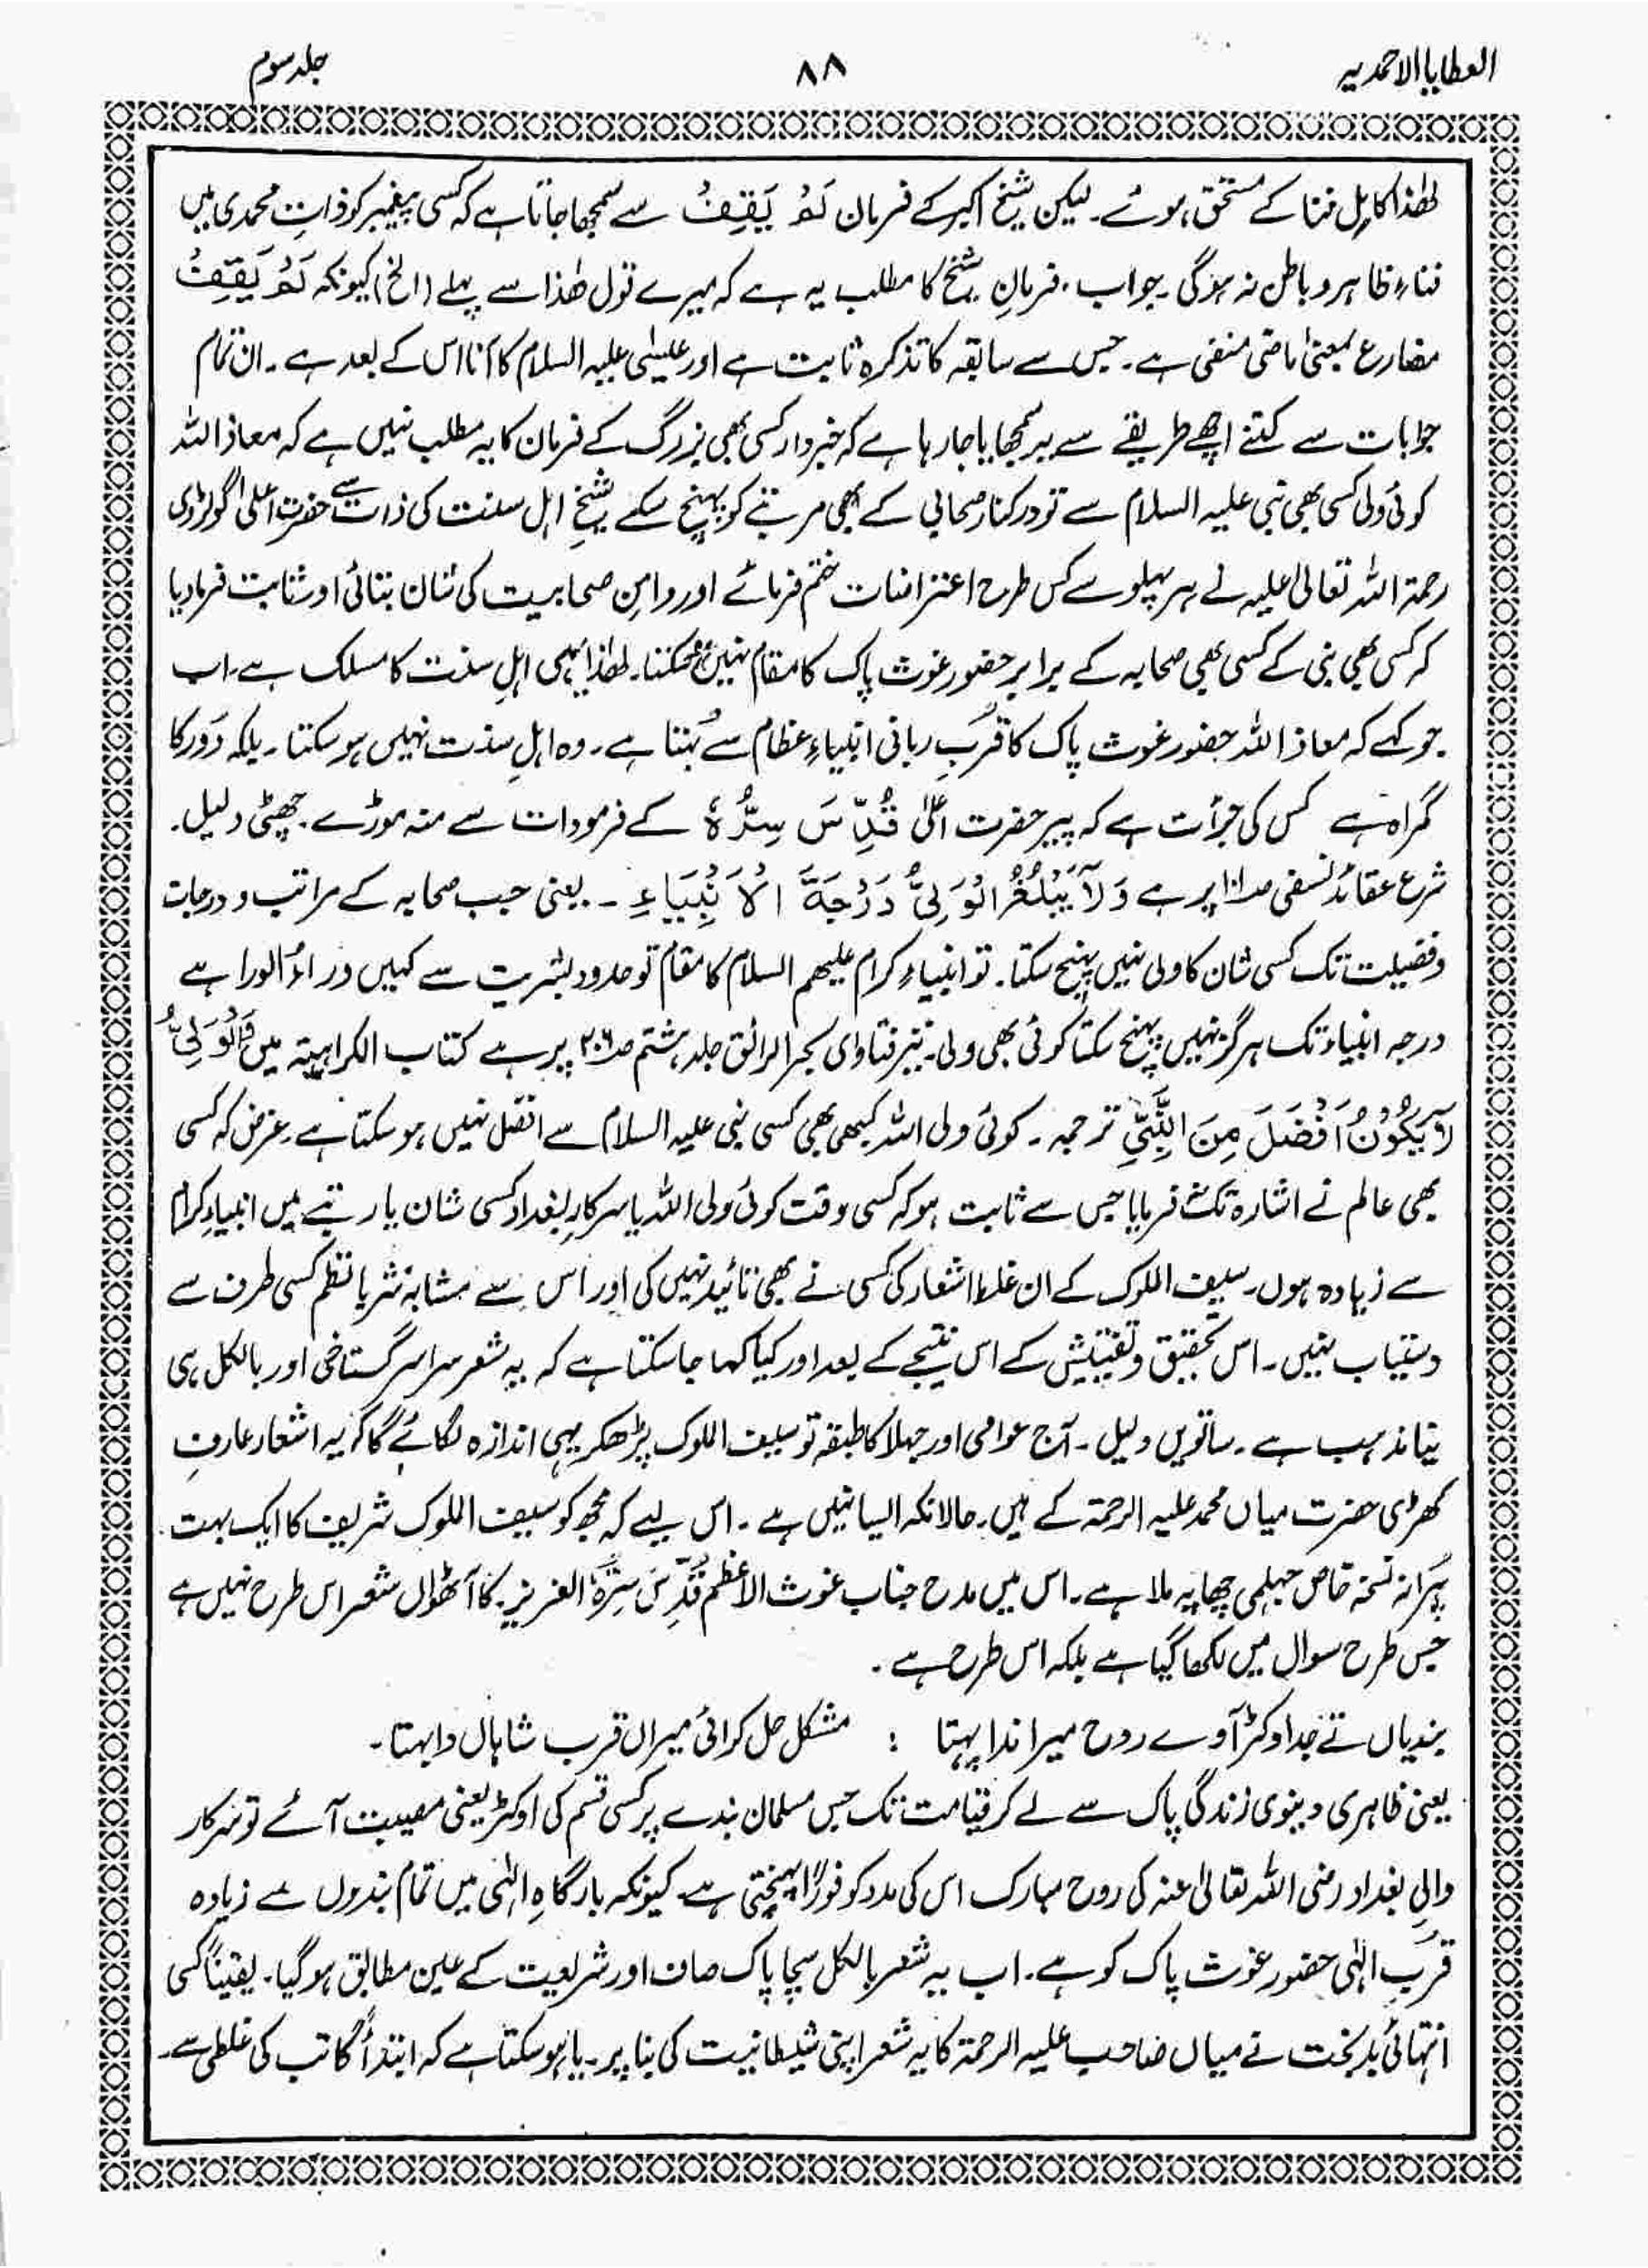 العطایا الاحمدیہ
۸۸
جلد سوم
لھٰذا کامل فنا کے مستحق ہوئے۔ لیکن شیخ اکبر کے فرمان لَمْ یَقِفْ سے سمجھا جاتا ہے کہ کسی پیغمبر کو ذاتِ محمدی میں
فناءِ ظاہر و باطن نہ ہو گی۔ جواب، فرمانِ شیخ کا مطلب یہ ہے کہ میرے قول ھٰذا سے پہلے (الخ) کیونکہ لَمْ یَقِفْ
مضارع بمعنیٰ ماضی منفی ہے۔ جس سے سابقہ کا تذکرہ ثابت ہے اور عیسٰی علیہ السلام کا آنا اس کے بعد ہے۔ ان تمام
جوابات سے کتنے اچھے طریقے سے یہ سمجھایا جا رہا ہے کہ خبردار کسی بھی بزرگ کے فرمان کا یہ مطلب نہیں ہے کہ معاذ اللہ
کوئی ولی کسی بھی نبی علیہ السلام سے تو درکنار صحابی کے بھی مرتبے کو پہنچ سکے شیخِ اہل سنت کی ذات سے حضرت اعلیٰ گولڑوی
رحمۃ اللہ تعالیٰ علیہ نے ہر پہلو سے کس طرح اعتراضات ختم فرمائے اور دامنِ صحابیت کی شان بتائی اور ثابت فرما دیا
کہ کسی بھی نبی کے کسی بھی صحابہ کے برابر حضور غوث پاک کا مقام نہیں ہو سکتا۔ لھٰذا یہی اہلِ سنت کا مسلک ہے۔ اب
جو کہے کہ معاذ اللہ حضور غوث پاک کا قُربِ ربانی انبیاءِ عظام سے بُہتا ہے۔ وہ اہلِ سنت نہیں ہو سکتا۔ بلکہ دَور کا
گمراہ ہے کس کی جرأت ہے کہ پیر حضرت اعلیٰ قُدِّسَ سِرُّہٗ کے فرمودات سے منہ موڑے۔ چھٹی دلیل۔
شرح عقائد نسفی صـ۱۰۱ پر ہے وَلَا یَبْلُغُ الْوَلِیُّ دَرْجَۃَ الْاَنْبِیَاءِ ۔ یعنی جب صحابہ کے مراتب و درجات
و فضیلت تک کسی شان کا ولی نہیں پہنچ سکتا۔ تو انبیاءِ کرام علیھم السلام کا مقام تو حدود بشریت سے کہیں وراءُ الورا ہے
درجہ انبیاء تک ہرگز نہیں پہنچ سکتا کوئی بھی ولی۔ نیز فتاوای بحر الرائق جلد ہشتم صـ۲۰۶ پر ہے کتاب الکراہیتہ میں فَالْوَلِیُّ
لَا یَکُوْنُ اَفْضَلَ مِنَ النَّبِیِّ ترجمہ۔ کوئی ولی اللہ کبھی بھی کسی نبی علیہ السلام سے افضل نہیں ہو سکتا ہے۔ غرض کہ کسی
بھی عالم نے اشارہ تک نہ فرمایا جس سے ثابت ہو کہ کسی وقت کوئی ولی اللہ یا سرکارِ بغداد کسی شان یا رتبے میں انبیاءِ کرام
سے زیادہ ہوں۔ سیف الملوک کے ان غلط اشعار کی کسی نے بھی تائید نہیں کی اور اس سے مشابہ نثر یا نظم کسی طرف سے
دستیاب نہیں۔ اس تحقیق و تفتیش کے اس نتیجے کے بعد اور کیا کہا جا سکتا ہے کہ یہ شعر سراسر گستاخی اور بالکل ہی
نیا مذہب ہے۔ ساتویں دلیل۔ آج عوامی اور جہلا کا طبقہ تو سیف الملوک پڑھکر یہی اندازہ لگائے گا کہ یہ اشعار عارفِ
کھڑی حضرت میاں محمد علیہ الرحمۃ کے ہیں۔ حالانکہ ایسا نہیں ہے۔ اس لیے کہ مجھ کو سیف الملوک شریف کا ایک بہت
پُرانہ نسخہ خاص جہلمی چھاپہ ملا ہے۔ اس میں مدح جناب غوث الاعظم قُدِّسَ سِرُّہٗ العزیز۔ کا آٹھواں شعر اس طرح نہیں ہے
جس طرح سوال میں لکھا گیا ہے بلکہ اس طرح ہے۔
بندیاں تے جد اوکڑ آوے روح میراندا پہتا : مشکل حل کرائی میراں قرب شاہاں دا بہتا۔
یعنی ظاہری دینوی زندگی پاک سے لے کر قیامت تک جس مسلمان بندے پر کسی قسم کی اوکڑ یعنی مصیبت آئے تو سرکار
والیِ بغداد رضی اللہ تعالیٰ عنہ کی روح مبارک اس کی مدد کو فوراً پہنچتی ہے۔ کیونکہ بارگاہِ الٰہی میں تمام بندوں سے زیادہ
قُربِ الٰہی حضور غوث پاک کو ہے۔ اب یہ شعر بالکل سچا پاک صاف اور شریعت کے عین مطابق ہو گیا۔ یقیناً کسی
انتہائی بدبخت نے میاں صاحب علیہ الرحمۃ کا یہ شعر اپنی شیطانیت کی بنا پر۔ یا ہو سکتا ہے کہ ابتدأً کاتب کی غلطی سے۔